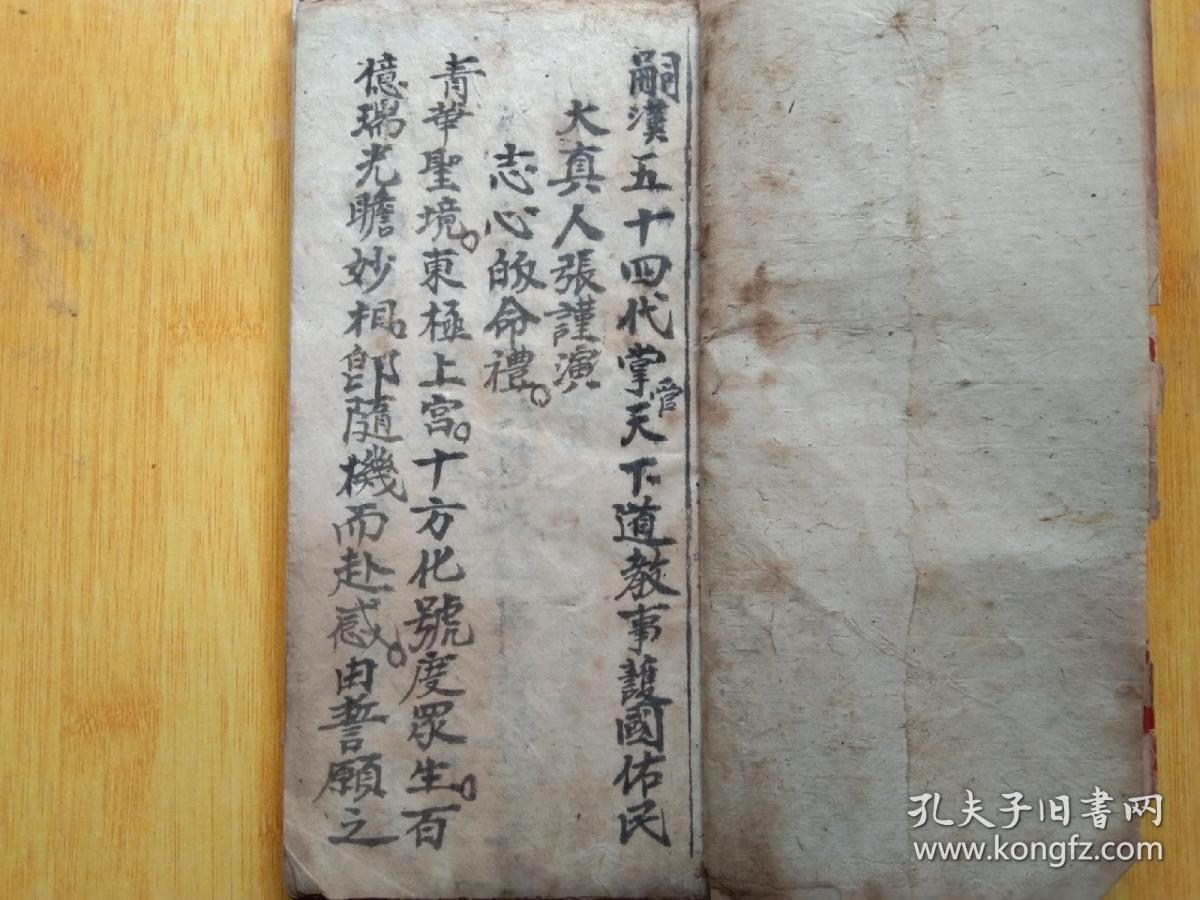 嗣漢五十四代掌管天下道教事護國佑民
大真人張謹演
志心皈命禮。
青華聖境。東極上宮。十方化號度眾生。百
億瑞光瞻妙相。即隨機而赴感。由誓願之
孔夫子旧书网
www.kongfz.com